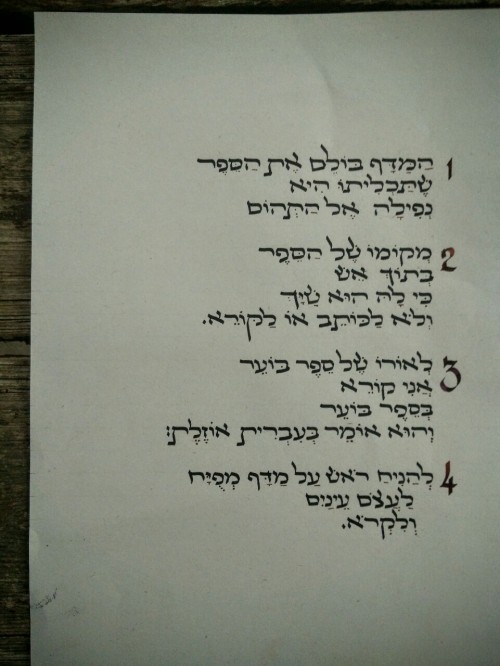 1 הַמַּדָּף בּוֹלֵם אֶת הַסֵּפֶר
שֶׁתַּכְלִיתוֹ הִיא
נְפִילָה אֶל הַתְּהוֹם
2 מְקוֹמוֹ שֶׁל הַסֵּפֶר
בְּתוֹךְ אֵשׁ
כִּי לָהּ הוּא שַׁיָּךְ
וְלֹא לַכּוֹתֵב אוֹ לַקּוֹרֵא.
3 לְאוֹרוֹ שֶׁל סֵפֶר בּוֹעֵר
אֲנִי קוֹרֵא
בְּסֵפֶר בּוֹעֵר
וְהוּא אוֹמֵר בְּעִבְרִית אוֹזֶלֶת:
4 לְהַנִּיחַ רֹאשׁ עַל מַדָּף מְפֻיָּח
לַעֲצֹם עֵינַיִם
וְלִקְרֹא.